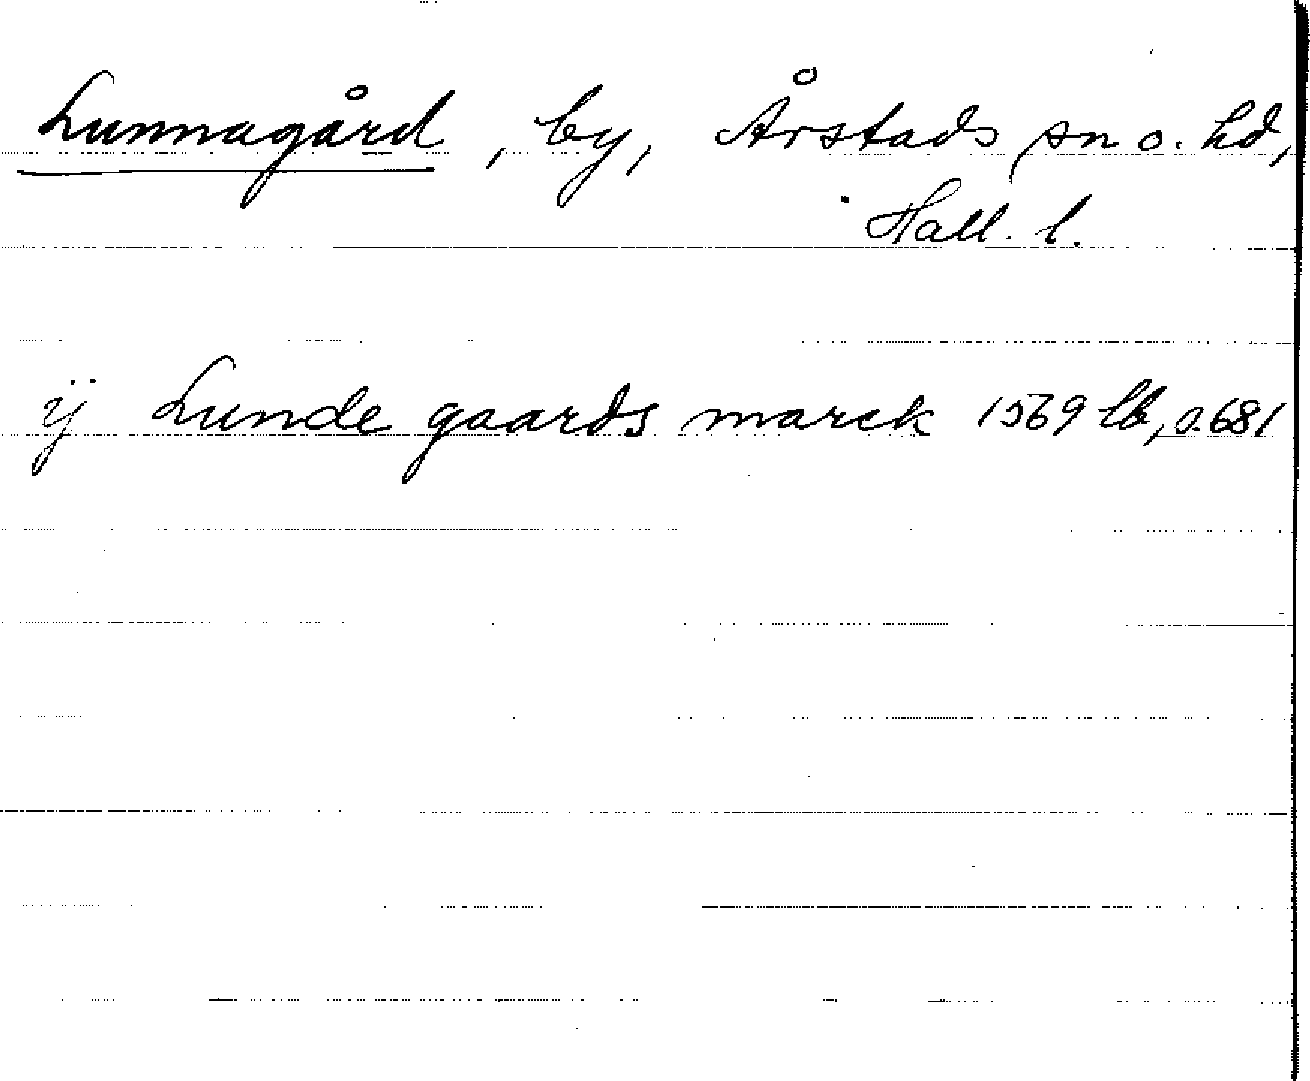 Lunnagård, by, Årstads sn o. hd,
Hall. l.
ÿ Lunde gaards marck 1569 lb, s. 681